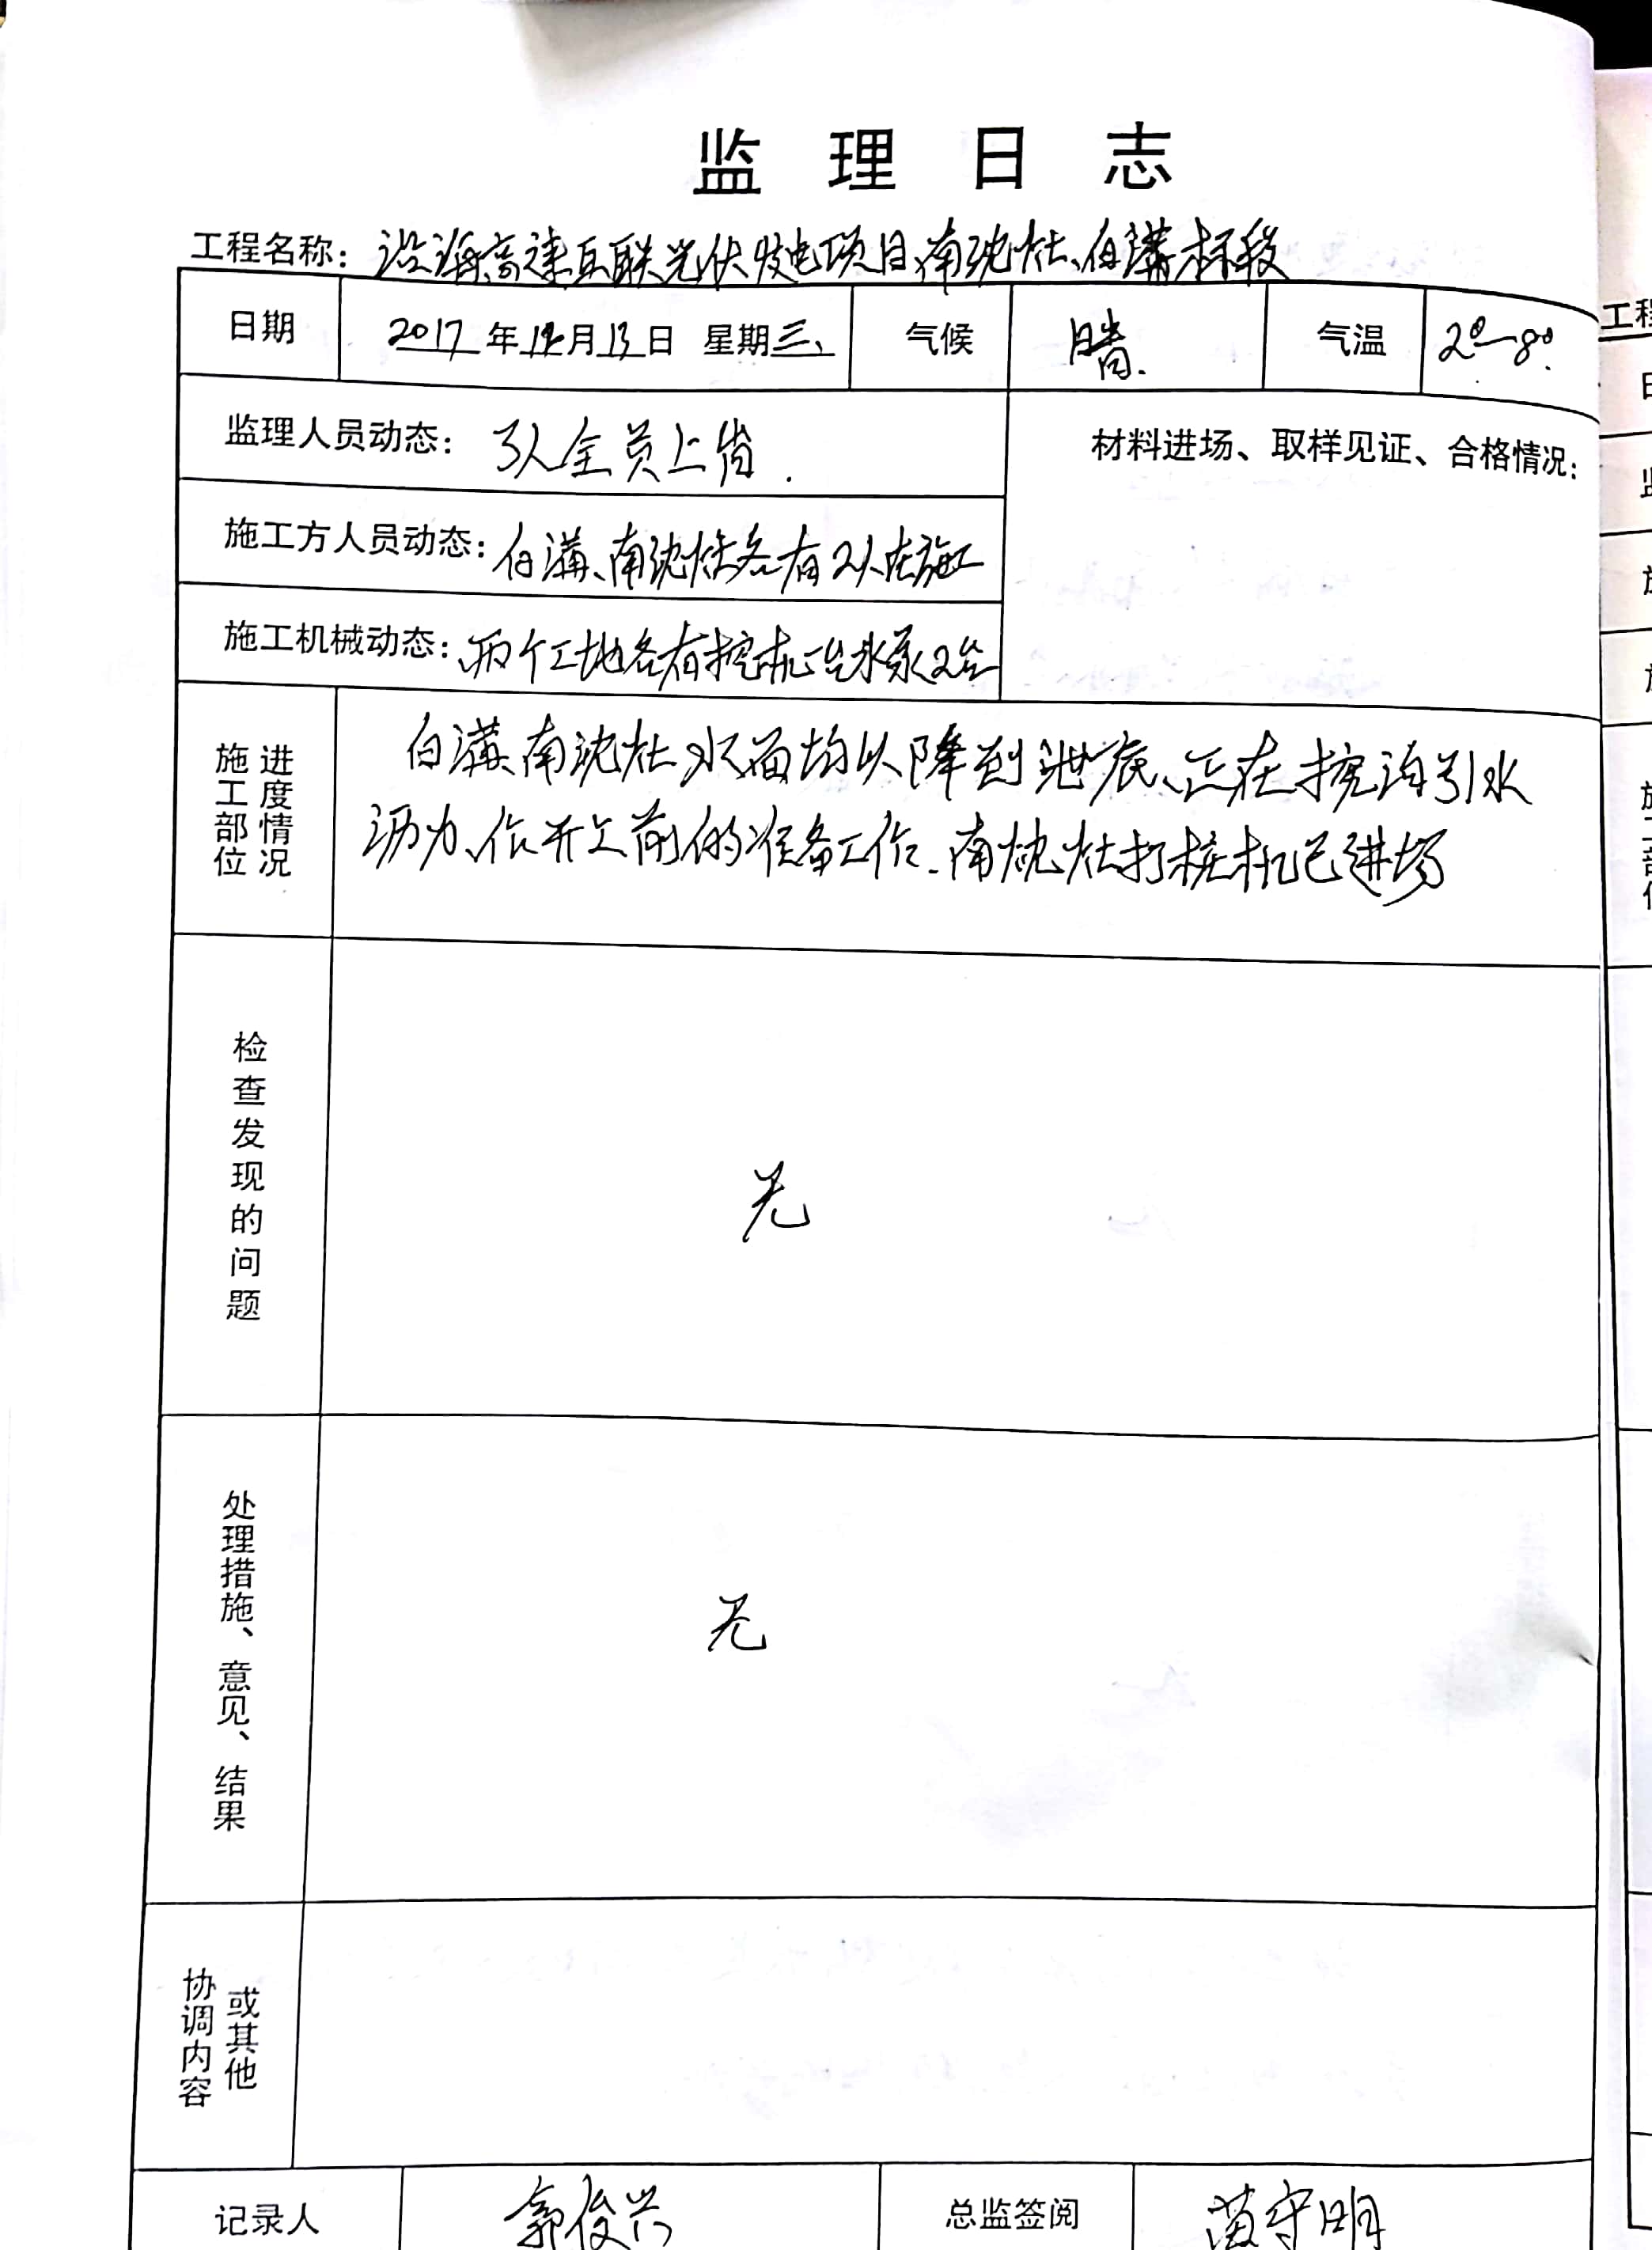 监理日志
工程名称：沿海高速互联光伏发电项目南沈灶、白溝标段
日期 2017年12月13日 星期三、 气候 晴. 气温 2°-8°.
监理人员动态：3人全员上岗. 材料进场、取样见证、合格情况：
施工方人员动态：白溝、南沈灶各有2人在施工
施工机械动态：两个工地各有挖机一台水泵2台
施工部位 进度情况
白溝、南沈灶水面均以降到泄底、正在挖沟引水
沥力、作开工前的准备工作.南沈灶打桩机已进场
检查发现的问题
无
处理措施、意见、结果
无
协调内容 或其他
记录人 郭俊兴 总监签阅 黄守明
工程
日